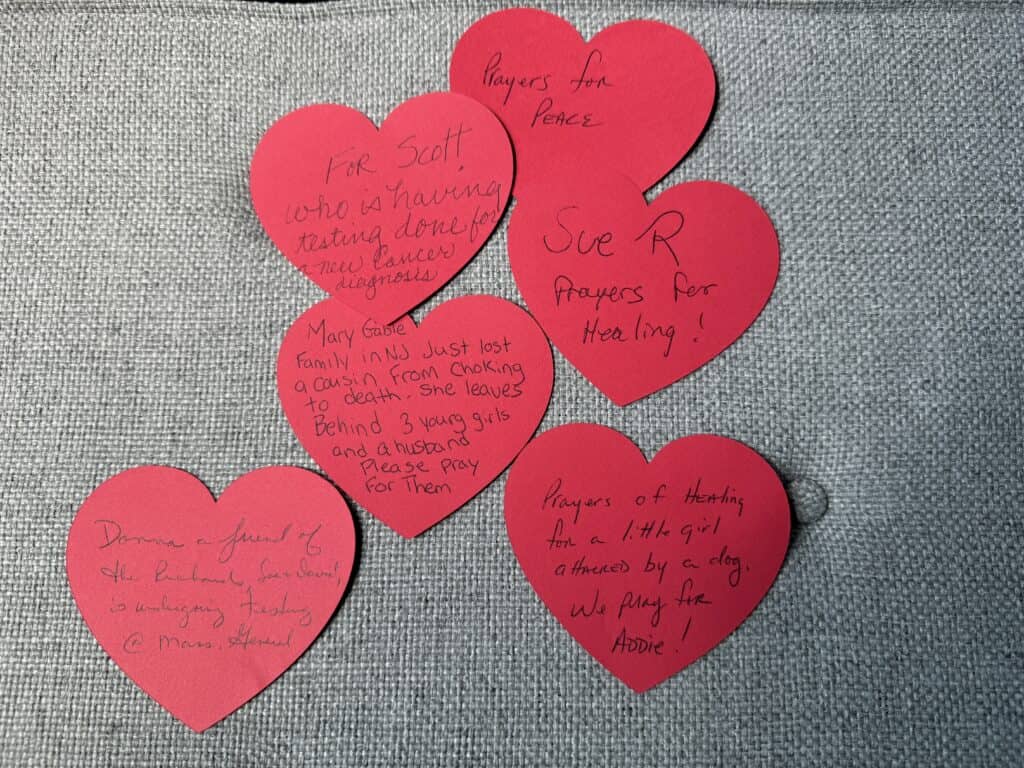 Prayers for
PEACE
For Scott
who is having
testing done for
a new Cancer
diagnosis
Sue R
Prayers for
Healing!
Mary Gable
Family in NJ Just lost
a cousin From Choking
to death. She leaves
Behind 3 young girls
and a husband
Please pray
For Them
Prayers of Healing
for a little girl
attacked by a dog.
We pray for
Addie!
Donna a friend of
the
is undergoing testing
@ Mass. General